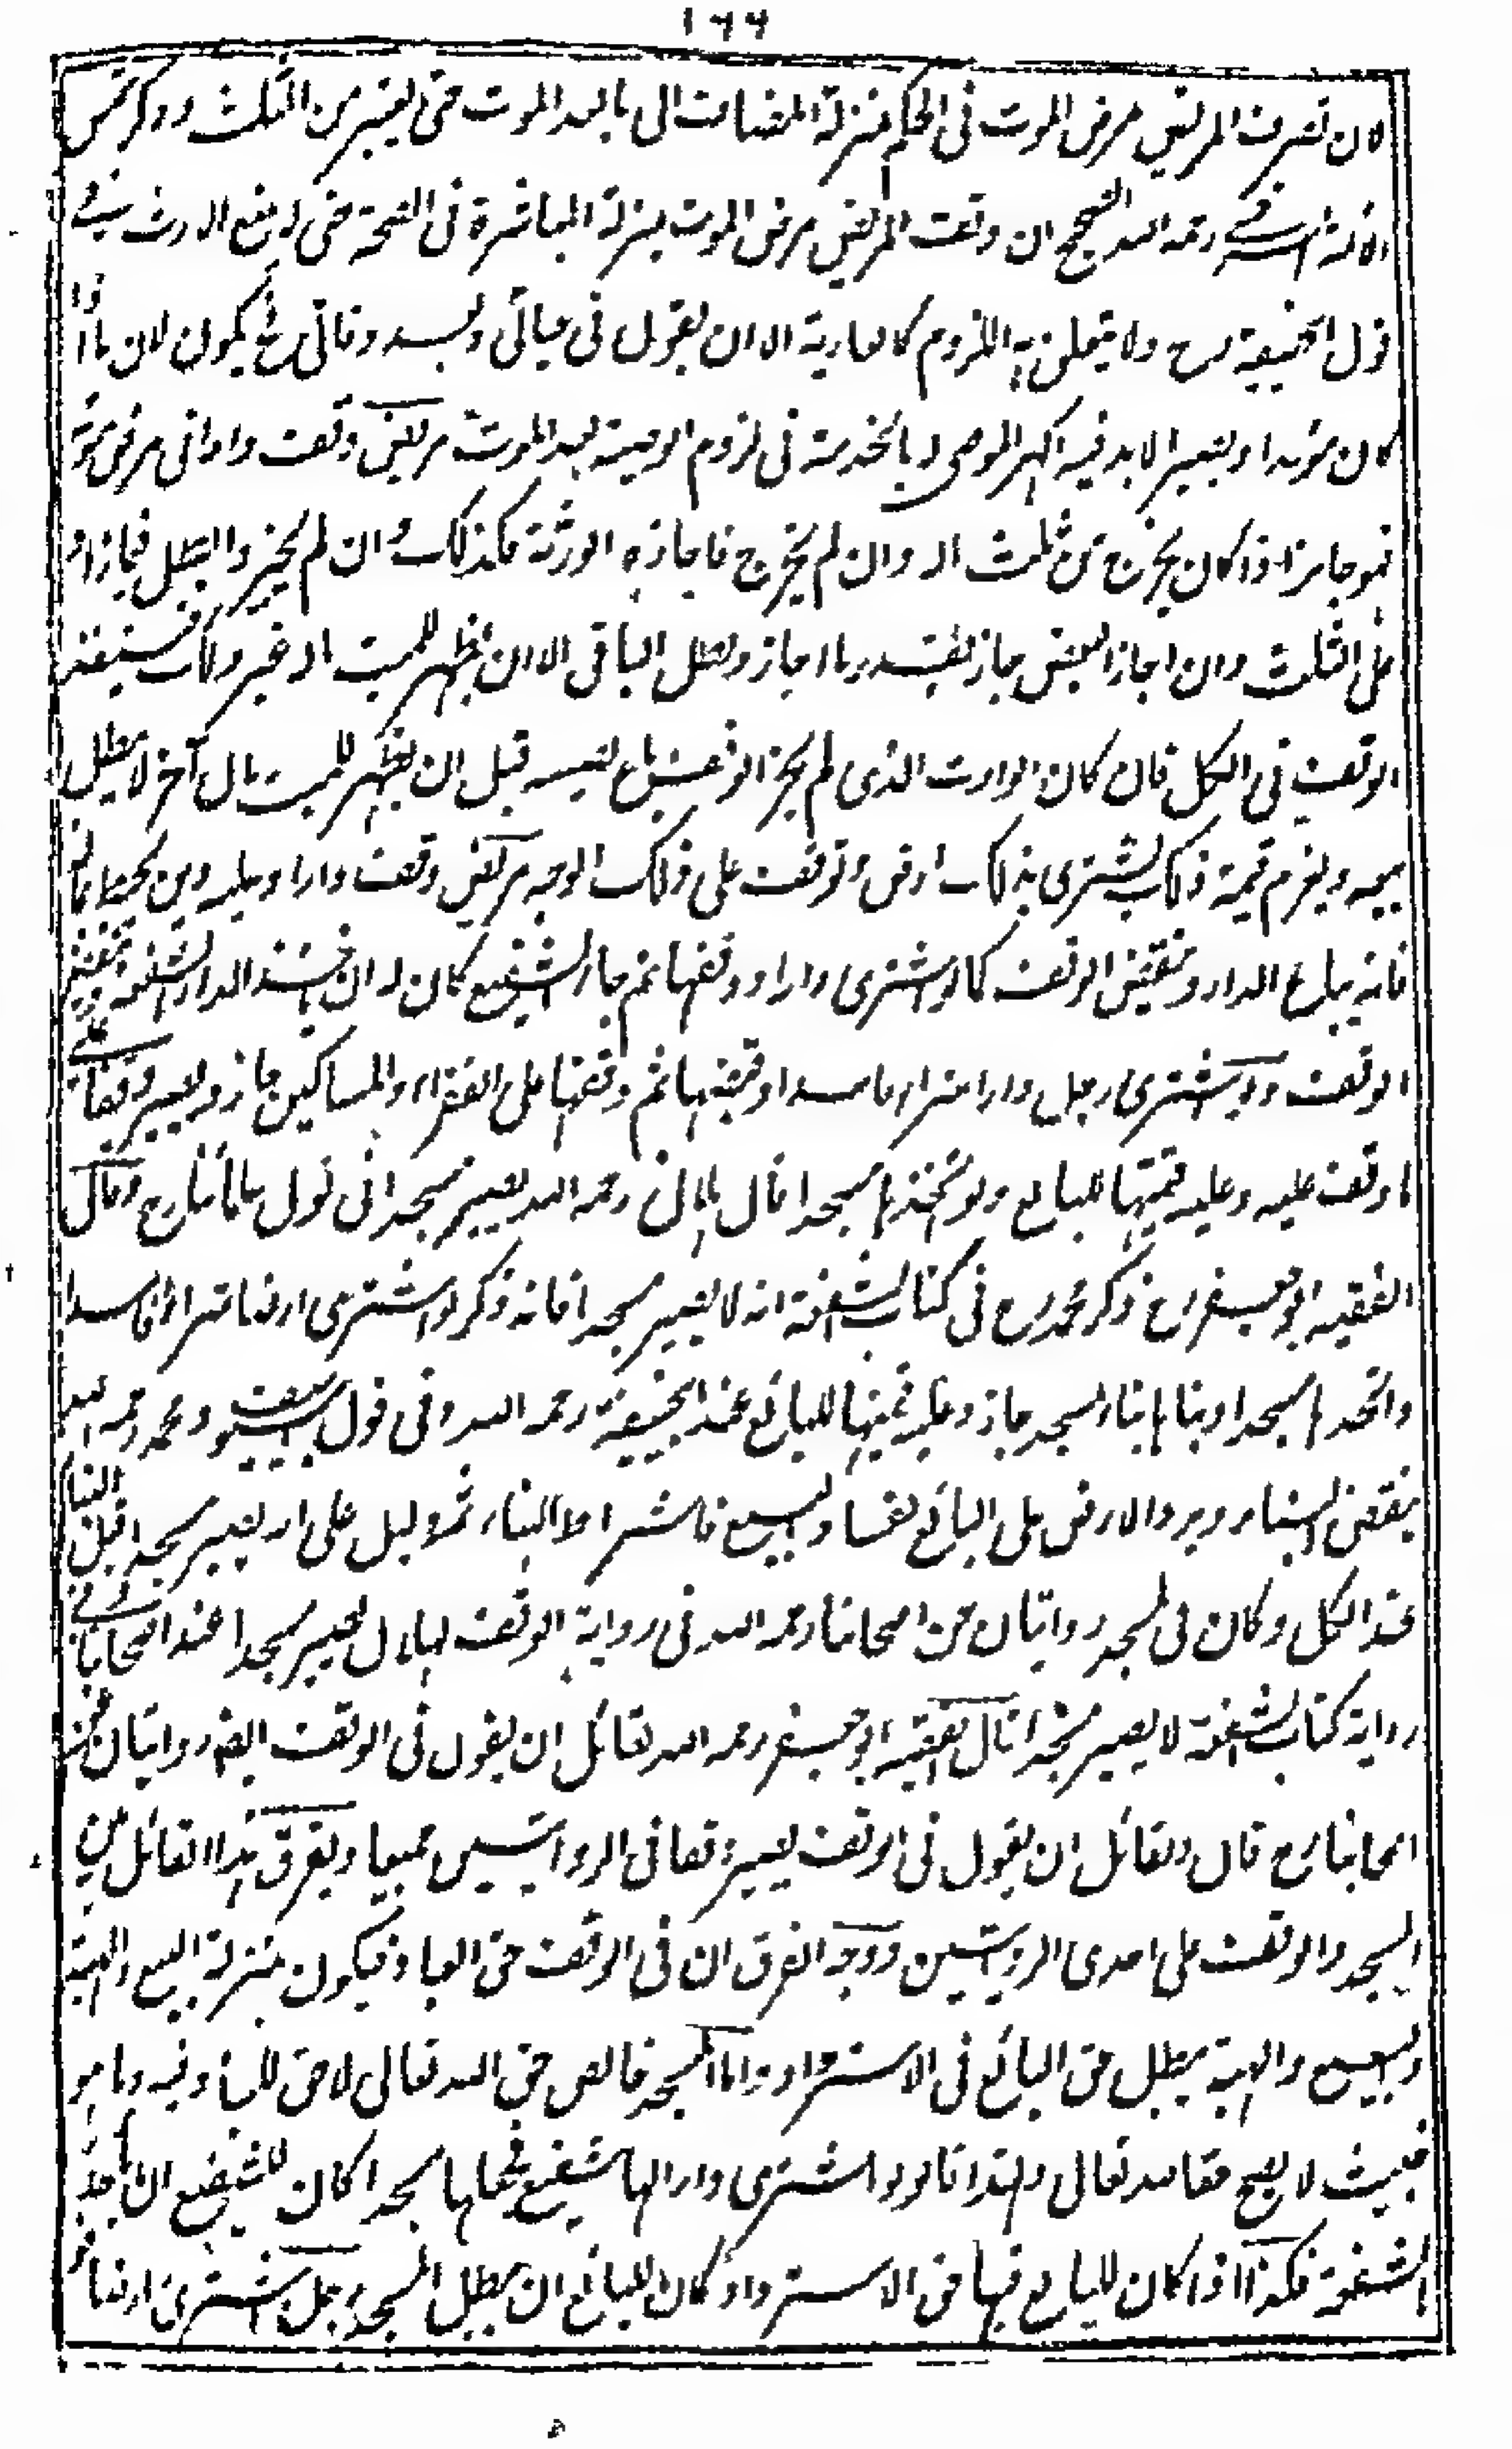 ١٦٦
لان تصرف المريض مرض الموت فى الحكم بمنزلة المضاف الى ما بعد الموت حتى يعتبر من الثلث وذكر شمس
الائمة السرخسى رحمه الله الصحيح ان وقف المريض مرض الموت بمنزلة المباشرة فى الصحة حتى لا يمنع الارث فى
قول ابيحنيفة رح ولا يتعلق به اللزوم كالعارية الا ان يقول فى حياتى وبعد وفاتى فح يكون لان ما اذا
كان مؤبدا و يصير الابد فيه كعمر الموصى له بالخدمة فى لزوم الوصية بعد الموت مريض وقف دارا فى مرض موته
فهو جائز اذا كان يخرج من ثلث المال وان لم يخرج فاجازه الورثة فكذلك وان لم يجيزوا بطل فيما زاد
على الثلث وان اجاز البعض جاز بقدر ما اجاز وبطل الباقى الا ان يظهر للميت مال غير ذلك فينفذ
الوقف فى الكل فان كان الوارث الذى لم يجز الوقف باع نصيبه قبل ان يظهر للميت مال آخر لا يبطل
بيعه ويغرم قيمة ذلك فيشترى بذلك ارض وتوقف على ذلك الوجه مريض وقف دارا وعليه دين يحيط بماله
فانه يباع الدار وينقض الوقف كما لو اشترى دارا ووقفها ثم جاء الشفيع كان له ان ياخذ الدار بالشفعة وينقض
الوقف ولو اشترى رجل دارا شراء فاسدا وقبضها ثم وقفها على الفقراء والمساكين جاز ويصير وقفا على
ما وقف عليه وعليه قيمتها للبايع ولو اتخذها مسجدا قال هلال رحمه الله يصير مسجدا فى قول علمائنا رح وقال
الفقيه ابو جعفر رح ذكر محمد رح فى كتاب الشفعة انه لا يصير مسجدا فانه ذكر لو اشترى ارضا شراء فاسدا
واتخذها مسجدا وبناها بناء المسجد جاز وعليه قيمتها للبائع عند ابيحنيفة رحمه الله وفى قول ابى يوسف ومحمد رحمه الله
ينقض البناء ويرد الارض على البائع بفساد البيع فاشتراط البناء دليل على انه لا يصير مسجدا قبل البناء
عند الكل وكان فى المسجد روايتان عن اصحابنا رحمه الله فى رواية الوقف لهلال يصير مسجدا عند اصحابنا وفى
رواية كتاب الشفعة لا يصير مسجدا قال الفقيه ابو جعفر رحمه الله لقائل ان يقول فى الوقف ايضا روايتان عن
اصحابنا رح قال ولقائل ان يقول فى الوقف يصير وقفا فى الروايتين جميعا ويفرق هذا القائل بين
المسجد والوقف على احدى الروايتين ووجه الفرق ان فى الوقف حق العباد فيكون بمنزلة البيع والهبة
وبالبيع والهبة يبطل حق البائع فى الاسترداد واما المسجد خالص حق الله تعالى لا حق للعباد فيه وما هو
خبيث لا يصح حقا لله تعالى ولهذا قالوا لو اشترى دارا لها شفيع فجعلها مسجدا كان للشفيع ان ياخذ
بالشفعة فكذا اذا كان للبايع فيها حق الاسترداد كان للبائع ان يبطل المسجد رجل اشترى ارضا